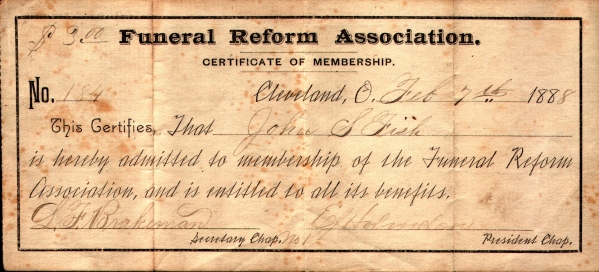 $ 3.00 Funeral Reform Association.
CERTIFICATE OF MEMBERSHIP.
No. 184 Cleveland, O. Feb 7th 1888
This Certifies, That John S Fish
is hereby admitted to membership of the Funeral Reform
Association, and is entitled to all its benefits.
D. F. Brakeman
Secretary Chap. No 1 President Chap.